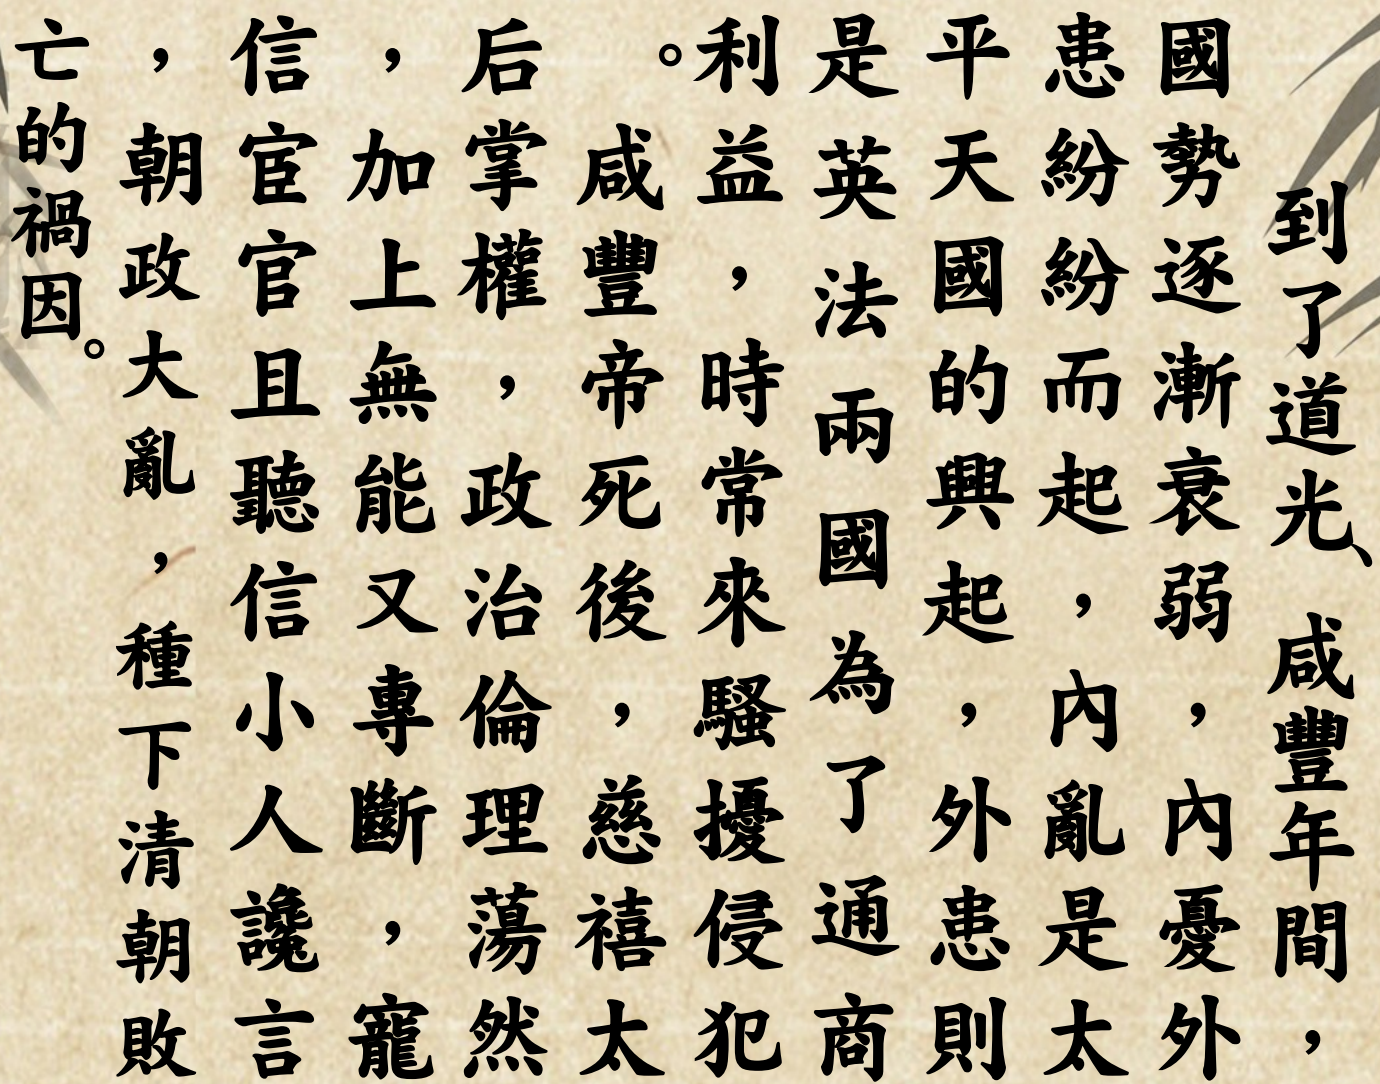 到了道光、咸豐年間，
國勢逐漸衰弱，內憂外
患紛紛而起，內亂是太
平天國的興起，外患則
是英法兩國為了通商
利益，時常來騷擾侵犯
。咸豐帝死後，慈禧太
后掌權，政治倫理蕩然
，加上無能又專斷，寵
信宦官且聽信小人讒言
，朝政大亂，種下清朝敗
亡的禍因。